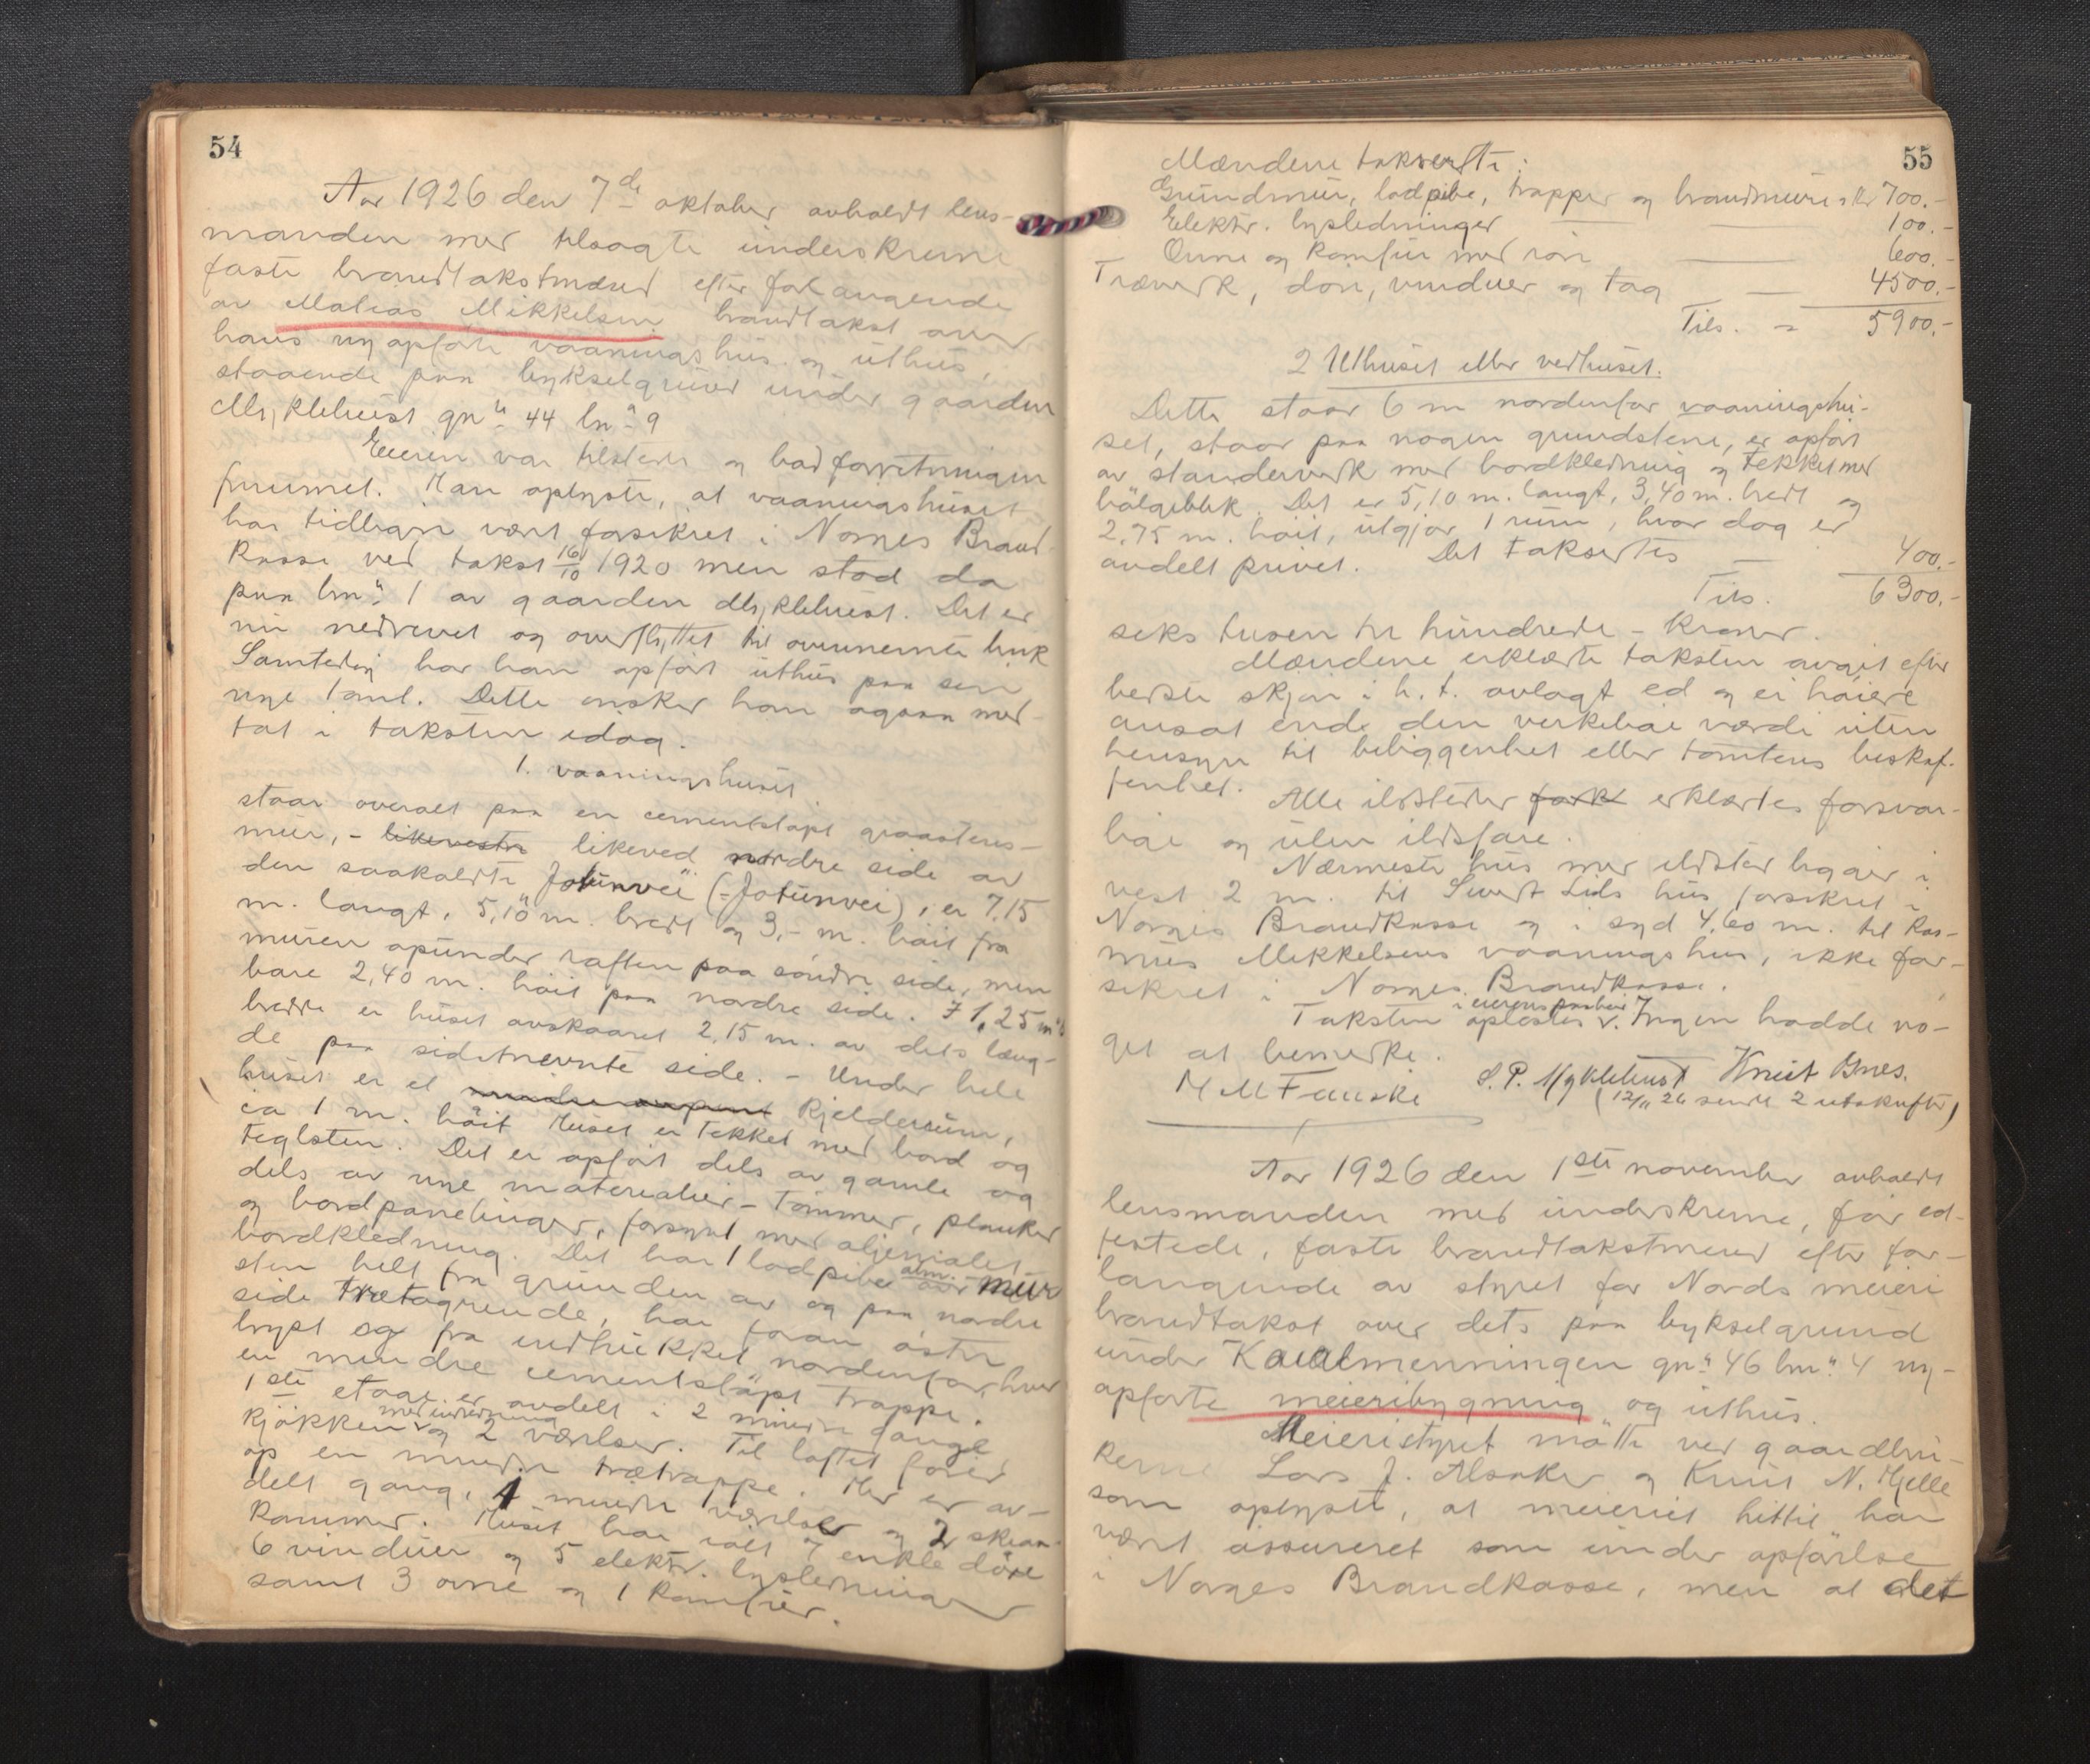 54
Aar 1926 den 7de oktober avholdt lens-
manden med tilsagte underskrevne
faste brandtakstmænd efter forlangende
av Matias Mikkelsen brandtakst over
hans nyopførte vaaningshus og uthus,
staaende paa bykselgrund under gaarden
Myklebust gnr. 44 bnr. 9
Eieren var tilstede og bad forretningen
fremmet. Han oplyste, at vaaningshuset
har tidligere vært forsikret i Norges Brand-
kasse ved takst 16/10 1920 men stod da
paa bnr. 1 av gaarden Myklebust. Det er
nu nedrevet og overflyttet til ovennevnte bruk
Samtidig har han opført uthus paa sin
nye tomt. Dette ønsker han ogsaa med-
tat i taksten idag.
1. vaaningshuset
staar overalt paa en cementstøpt graastens-
mur, - likevestre likeved nordre side av
den saakaldte "Jotunvei" (=Jotunvei), er 7,15
m. langt, 5,10 m. bredt og 3,- m. høit fra
muren opunder raften paa søndre side, men
bare 2,40 m. høit paa nordre side. I 1,25 m's
bredde er huset avskaaret 2,15 m. av dets læng-
de paa sidstnevnte side. - Under hele
huset er et kjelderrum,
ca 1 m. høit Huset er tekket med bord og
teglsten. Det er opført dels av gamle og
dels av nye materialier - Tømmer, planker
og bordpanelinger, forsynt med oljemalet
bordkledning. Det har 1 lodpibe av alm. mur
sten helt fra grunden av og paa nordre
side trætagrende, har foran østre
bryst og fra indhukket nordenfor, hver
en mindre cementstøpt trappe.
1ste etage er avdelt i 2 mindre gange
kjøkken med indredning og 2 værelser. Til loftet fører
op en mindre trætrappe. Her er av-
delt gang, 1 mindre værelse og 2 skraa-
kammer. Huset har ialt 7 enkle døre
6 vinduer og 5 elektr. lysledninger
samt 3 ovne og 1 komfur.
55
Mændene takserte:
Grundmur, lodpibe, trapper og brandmure kr 700.-
Elektr. lysledninger — 100.-
Ovne og komfur med rør — 600.-
Træverk, døre, vinduer og tag — 4500.-
Tils. = 5900.-
2 Uthuset eller vedhuset.
Dette staar 6 m nordenfor vaaningshu-
set, staar paa nogen grundstene, er opført
av standerverk med bordkledning og tekket med
bølgeblik. Det er 5,10 m. langt, 3,40 m. bredt og
2,75 m. høit, utgjør 1 rum, hvor dog er
avdelt privet. Det takseertes — 400.-
Tils. 6300.-
seks tusen tre hundrede - kroner.
Mændene erklærte taksten avgit efter
bedste skjøn i h. t. avlagt ed og ei høiere
ansat ende den virkelige værdi uten
hensyn til beliggenhet eller tomtens beskaf-
fenhet.
Alle ildsteder fork erklærtes forsvar-
lige og uten ildsfare.
Nærmeste hus med ildsted ligger i
vest 2 m. til Sivert Lids hus forsikret i
Norges Brandkasse og i syd 4,60 m. til Ras-
mus Mikkelsens vaaningshus, ikke for-
sikret i Norges Brandkasse.
Taksten oplæstes i eierens paahør. Ingen hadde no-
get at bemerke.
M M Fauske S. P. Myklebust Knut Bnes.
(12/11 26 sendt 2 utskrifter)
Aar 1926 den 1ste november avholdt
lensmanden med underskrevne, før ed-
festede, faste brandtakstmænd efter for-
langende av styret for Nords meieri
brandtakst over dets paa bykselgrund
under Kaualmenningen gnr. 46 bnr. 4 ny-
opførte meieribygning og uthus.
Meieristyret møtte ved gaardbru-
kerne Lars J. Alsaker og Knut N. Hjelle
som oplyste, at meieriet hittil har
vært assureret som under opførelse
i Norges Brandkasse, men at det